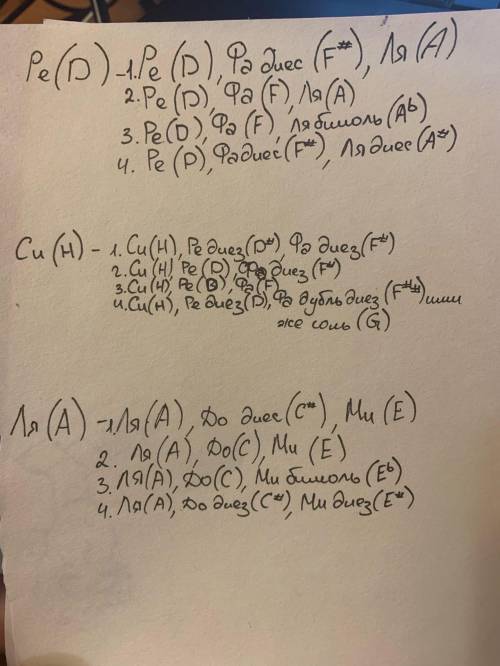 Ре (D) – 1. Ре (D), Фа диес (F#), Ля (A)
2. Ре (D), Фа (F), Ля (A)
3. Ре (D), Фа (F), Ля бимоль (Ab)
4. Ре (D), Фа диес (F#), Ля диес (A#)
Си (H) – 1. Си (H), Ре диез (D#), Фа диез (F#)
2. Си (H) Ре (D), Фа диез (F#)
3. Си (H), Ре (D), Фа (F)
4. Си (H), Ре диез (D), Фа дубль диез (F##) или
же соль (G)
Ля (A) – 1. Ля (A), До диес (C#), Ми (E)
2. Ля (A), До (C), Ми (E)
3. Ля (A), До (C), Ми бимоль (Eb)
4. Ля (A), До диез (C#), Ми диез (E#)